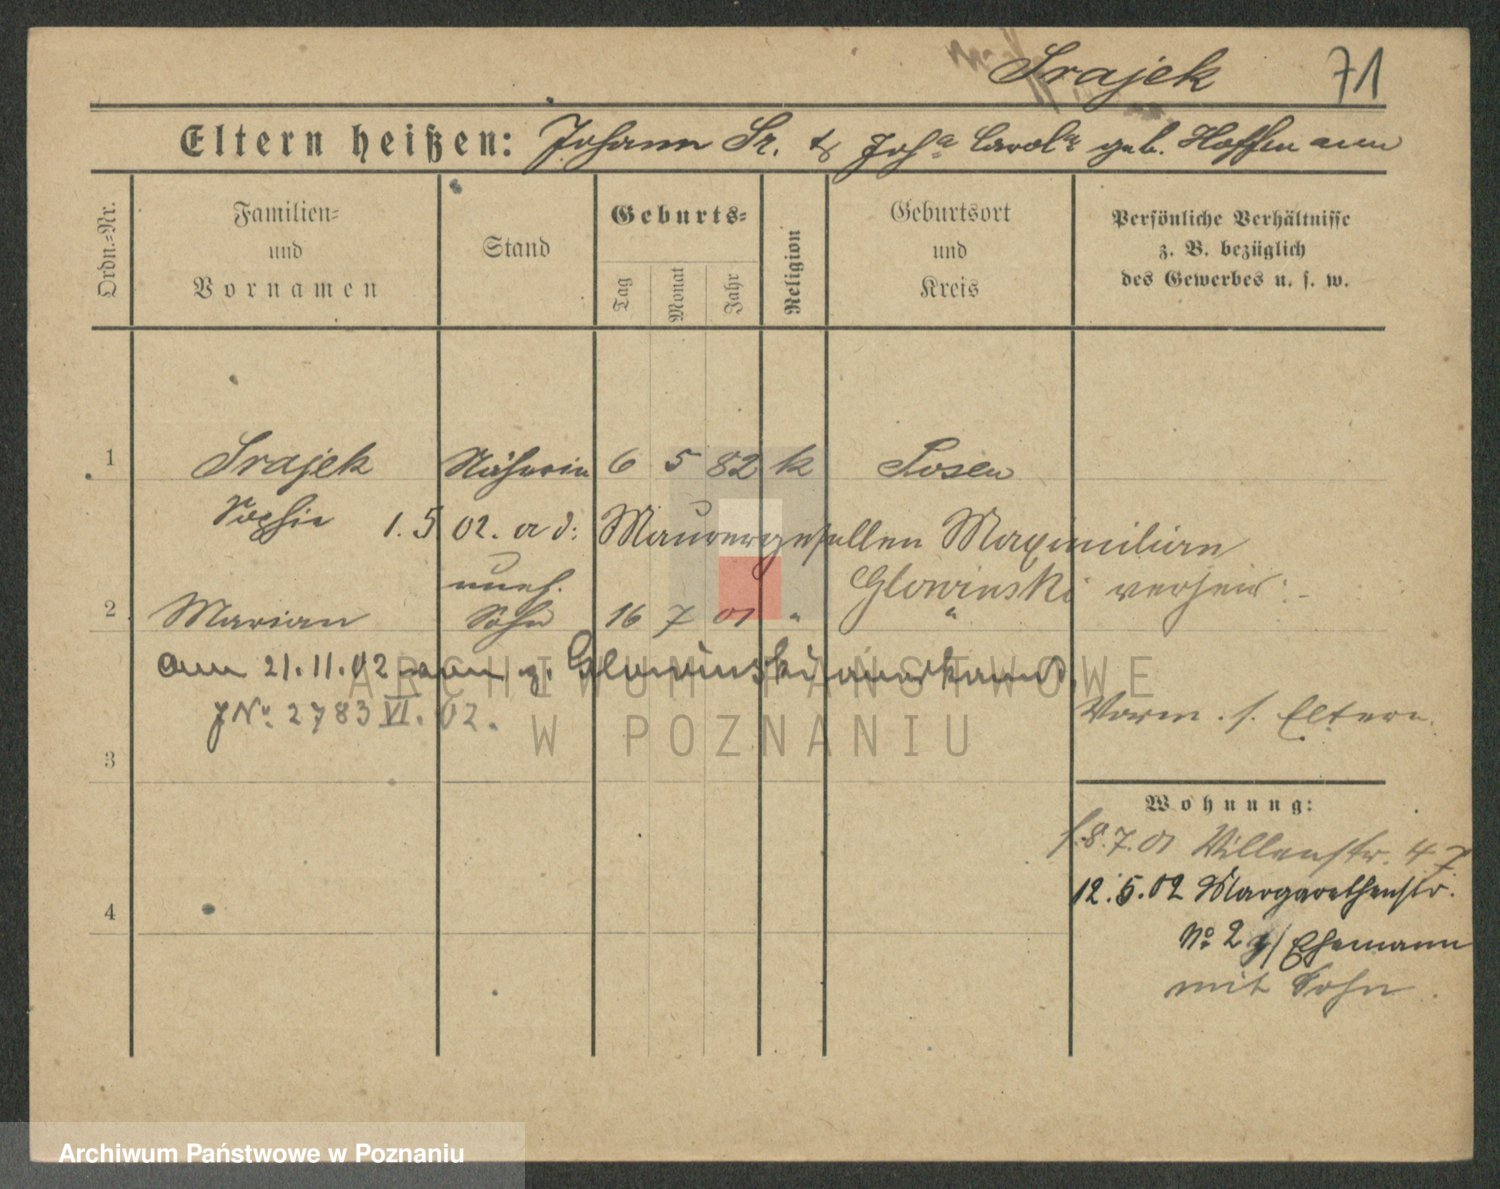 Srajek 71
Eltern heißen: Johann Sr. & Joha Carola geb. Hoffmann
Ordn.=Nr.
Familien= und Vornamen
Stand
Geburts=
Tag
Monat
Jahr
Religion
Geburtsort und Kreis
Persönliche Verhältnisse z. B. bezüglich des Gewerbes u. s. w.
1 Srajek Näherin 6 5 82 k Posen
Sophie 1.5.02. a d: Maurergesellen Maximilian
Glowinski verheir:
uneh.
2 Marian Sohn 16 7 01 " "
am 21.11.02 von g. Glowinski anerkannt.
JNo. 2783 VI. 02.
Vorm. s. Eltern.
3
Wohnung:
f. 8.7.01 Villenstr. 47
12.5.02 Margarethenstr.
4
No 2 z/ Ehemann
mit Sohn.
ARCHIWUM PAŃSTWOWE
W POZNANIU
Archiwum Państwowe w Poznaniu